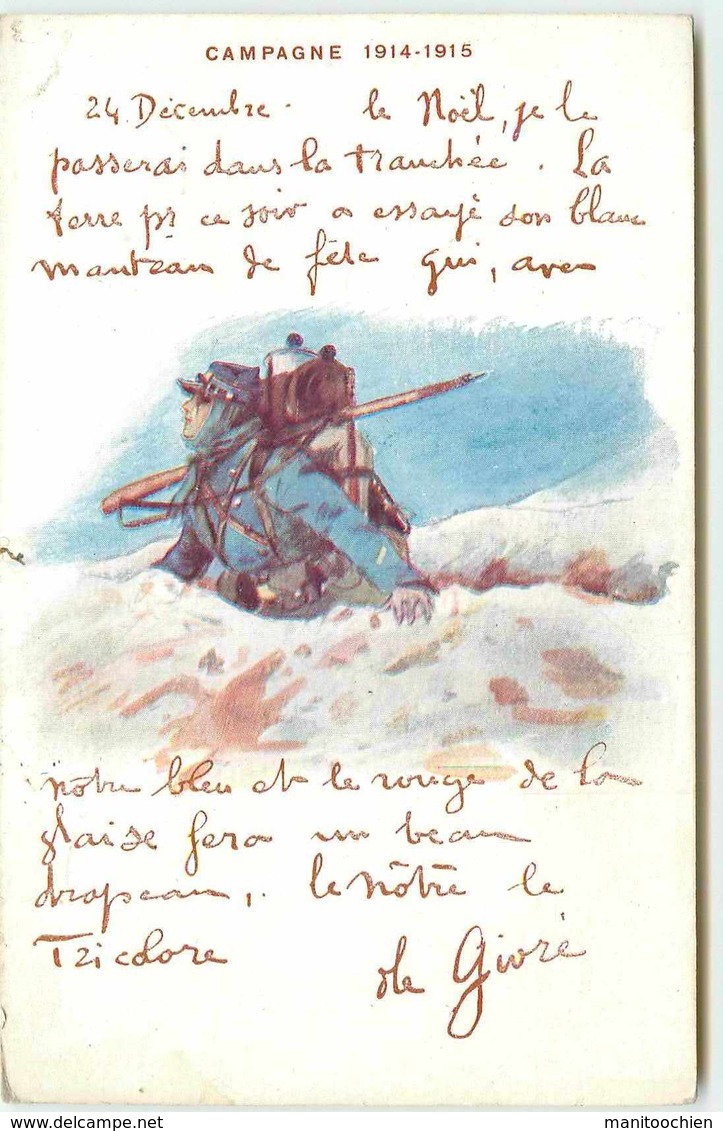 CAMPAGNE 1914-1915
24 Décembre. le Noël, je le
passerai dans la tranchée. La
terre pr ce soir a essayé son blanc
manteau de fête qui, avec
nôtre bleu et le rouge de la
glaise fera un beau
drapeau, le nôtre le
Tricolore
de Givré
delcampe.net
manitoochien